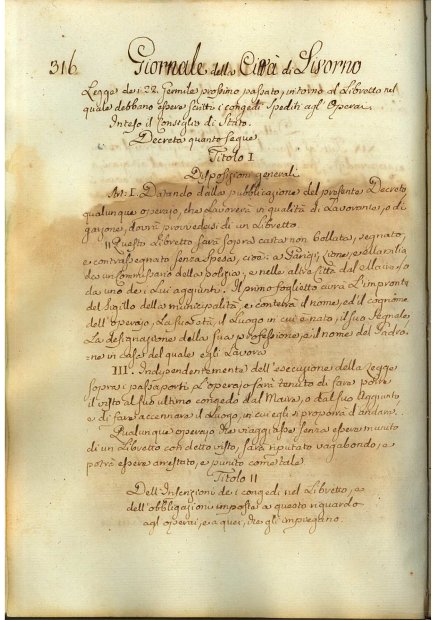 316 Giornale della Città di Livorno
Legge de i 22 Germile prossimo passato, intorno al Libretto nel
quale debbano essere scritti i congedi spediti agl'Operai.
Inteso il Consiglio di Stato.
Decreta quanto segue
Titolo I
Disposizioni generali
Art: I. Datando dalla pubblicazione del presente Decreto
qualunque operajo, che Lavorerà in qualità di Lavorante, o di
garzone, dovrà provvedersi di un Libretto.
II Questo Libretto sarà sopra carta non bollata, segnato,
e contrassegnato senza spesa, cioè: a Parigi, Lione, e Marsilia
da un Commissario della Polizia, e nelle altre Città dal Maire, o
da uno de i Lui aggiunti. Il primo foglietto avrà L'impronta
del Sigillo della municipalità, e conterrà il nome, ed il cognome
dell'operajo, La sua età, il Luogo in cui è nato, il suo segnale,
La designazione della sua professione, e il nome del Padro-
ne in casa del quale egli Lavora
III. Indipendentemente dell'esecuzione della Legge
sopra i passaporti L'operajo sarà tenuto di fare porre
il visto al suo ultimo congedo dal Maire, o dal suo Aggiunto
e di fare accennare il Luogo, in cui egli si proporrà d'andare.
Qualunque operajo che viaggiasse senza essere munito
di un Libretto con detto visto, sarà riputato vagabondo, e
potrà essere arrestato, e punito come tale.
Titolo II
Dell'Inserzioni de i congedi nel Libretto, e
dell'obbligazioni imposte a questo riguardo
agl'operai, e a quei, che gli impiegano.